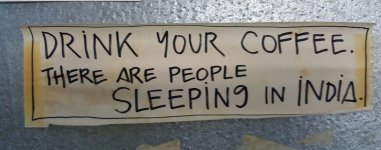 DRINK YOUR COFFEE.
THERE ARE PEOPLE
SLEEPING IN INDIA.